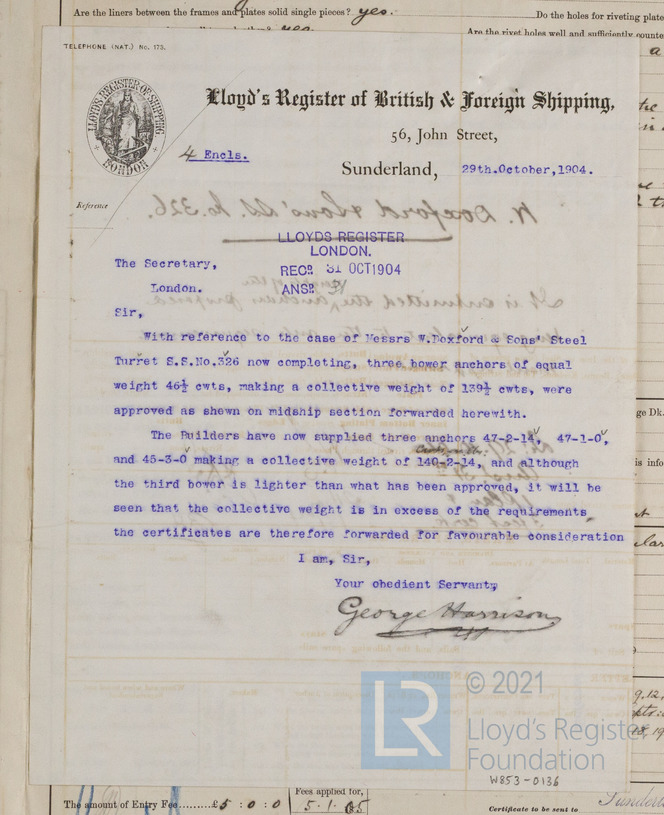 Are the liners between the frames and plates solid single pieces? yes.
Do the holes for riveting plate
Are the rivet holes well and sufficiently counte
TELEPHONE (NAT.) No. 173.
LLOYD'S REGISTER OF SHIPPING.
LONDON
Lloyd's Register of British & Foreign Shipping,
56, John Street,
4 Encls.
Sunderland, 29th.October,1904.
Reference
W. Doxford & Sons' Ld. No. 326.
LLOYDS REGISTER
LONDON.
RECD. 31 OCT 1904
ANSD.
The Secretary,
London.
Sir,
With reference to the case of Messrs W.Doxford & Sons' Steel
Turret S.S.No.326 now completing, three bower anchors of equal
weight 46½ cwts, making a collective weight of 139½ cwts, were
approved as shewn on midship section forwarded herewith.
The Builders have now supplied three anchors 47-2-14, 47-1-0,
and 45-3-0 making a collective weight of 140-2-14, and although
the third bower is lighter than what has been approved, it will be
seen that the collective weight is in excess of the requirements
the certificates are therefore forwarded for favourable consideration
I am, Sir,
Your obedient Servant,
George Harrison
LR © 2021
Lloyd's Register
Foundation
W853-0136
The amount of Entry Fee.........£5 : 0 : 0
Fees applied for,
5.1.05
Certificate to be sent to